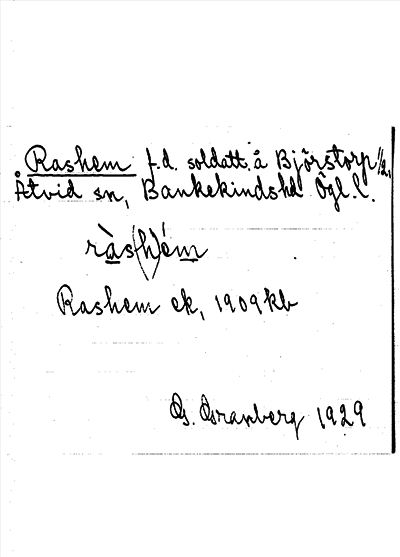 Rashem f.d. soldatt. å Björstorp 1/2,
Åtvid sn, Bankekindshd Ögl. l.
ràs(h)ém
Rashem ek, 1909 kb
G. Granberg 1929